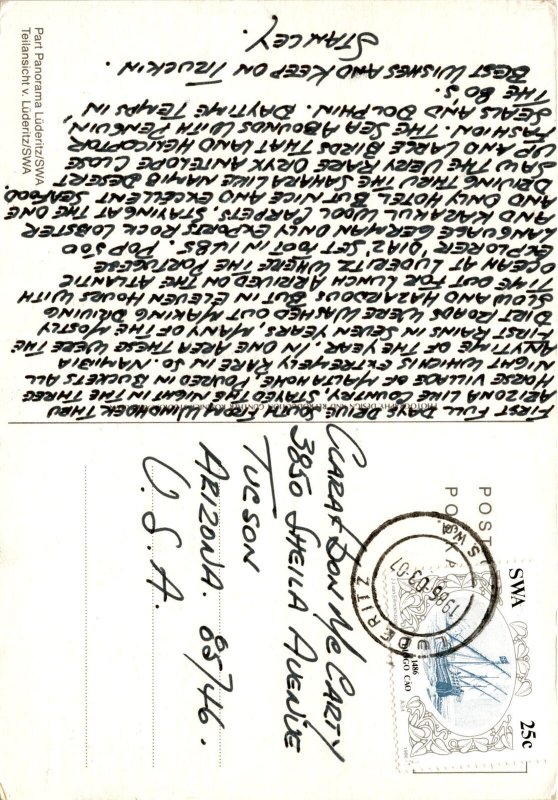 FIRST FULL DAYS DRIVE SOUTH FROM WINDHOEK THRU
ARIZONA LIKE COUNTRY. STAYED THE NIGHT IN THE THREE
HORSE VILLAGE OF MALTAHOHE. POURED IN BUCKETS ALL
NIGHT WHICH IS EXTREMELY RARE IN SO. NAMIBIA
ANYTIME OF THE YEAR. IN ONE AREA THESE WERE THE
FIRST RAINS IN SEVEN YEARS. MANY OF THE MOSTLY
DIRT ROADS WERE WASHED OUT MAKING DRIVING
SLOW AND HAZARDOUS BUT IN ELEVEN HOURS WITH
TIME OUT FOR LUNCH ARRIVED ON THE ATLANTIC
OCEAN AT LUDERITZ WHERE THE PORTUGESE
EXPLORER DIAZ SET FOOT IN POP
LANGUAGE GERMAN ONLY EXPORTS ROCK LOBSTER
AND KARAKUL WOOL CARPETS. STAYING AT THE ONE
AND ONLY HOTEL BUT NICE AND EXCELLENT SEAFOOD.
DRIVING THRU THE SAHARA LIKE NAMIB DESERT
SAW THE VERY RARE ORYX ANTELOPE CLOSE
UP AND LARGE BIRDS THAT LAND HELICOPTOR
FASHION. THE SEA ABOUNDS WITH PENGUIN,
SEALS AND DOLPHIN. DAYTIME TEMPS IN
THE 80'S.
BEST WISHES AND KEEP ON TRUCKIN.
STANLEY.
Part Panorama Lüderitz/SWA
Teilansicht v. Lüderitz/SWA
PHOTOGRAPHY, DESIGN AND
POST
PO
CLARA & DON MCCARTY
3850 SHEILA AVENUE
TUCSON
ARIZONA. 85746.
U.S.A.
LÜDERITZ
S.W.A.
1986-03-07
SWA
25c
1486
DIOGO CÃO